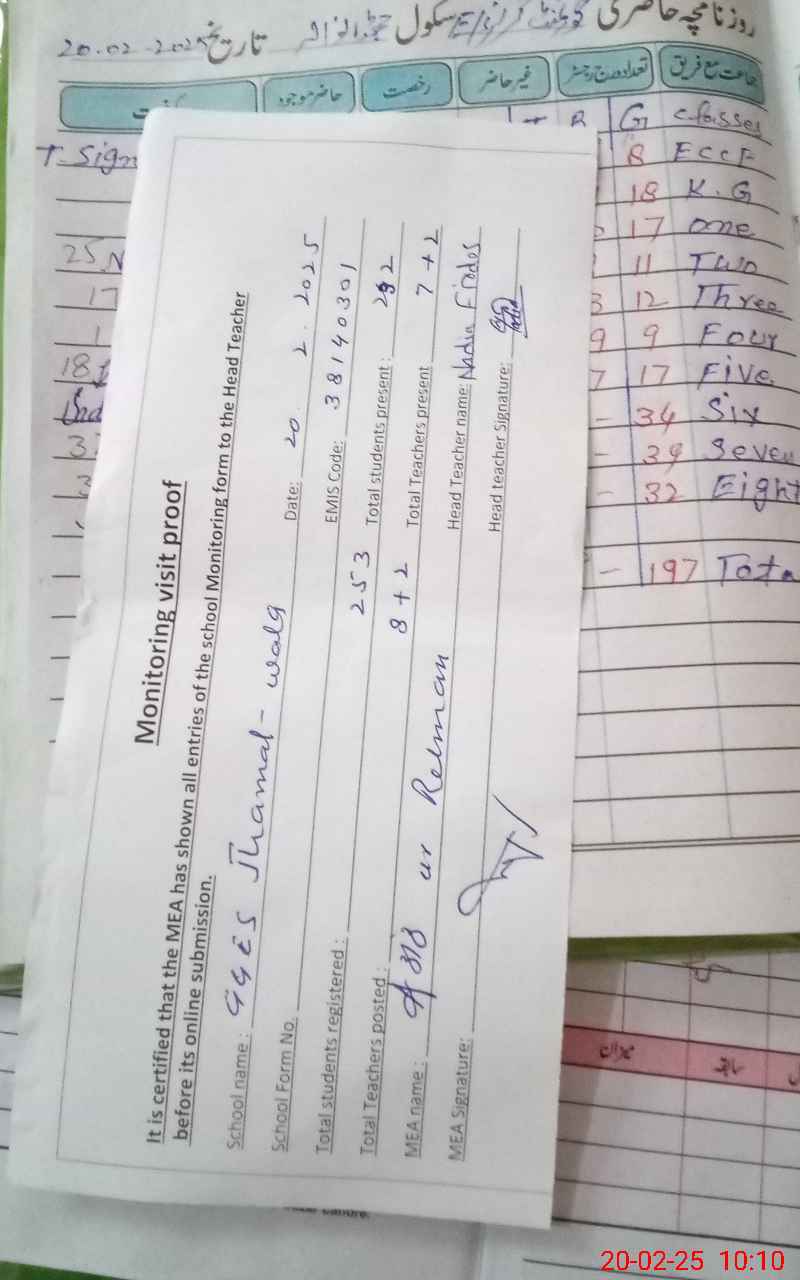 روزنامچہ حاضری گورنمنٹ گرلز E/سکول
تاریخ 20.02.2025
جماعت مع فریق تعداد مندرجہ رجسٹر غیر حاضر رخصت حاضر موجود
B G Classes
T. Sign 8 ECCE
18 K.G
17 One
25 11 Two
17 3 12 Three
1 9 9 Four
18 7 17 Five
- 34 Six
3 - 39 Seven
3 - 32 Eight
- 197 Tota
Monitoring visit proof
It is certified that the MEA has shown all entries of the school Monitoring form to the Head Teacher
before its online submission.
School name : GGES Jhamal-wala
School Form No. Date: 20. 2. 2025
Total students registered : 253 EMIS Code: 38140301
Total Teachers posted : 8+2 Total students present : 232
MEA name : ur Rehman Total Teachers present : 7+2
MEA Signature: Head Teacher name: Nadia Firdos
Head teacher Signature:
میزان سابقہ
20-02-25 10:10